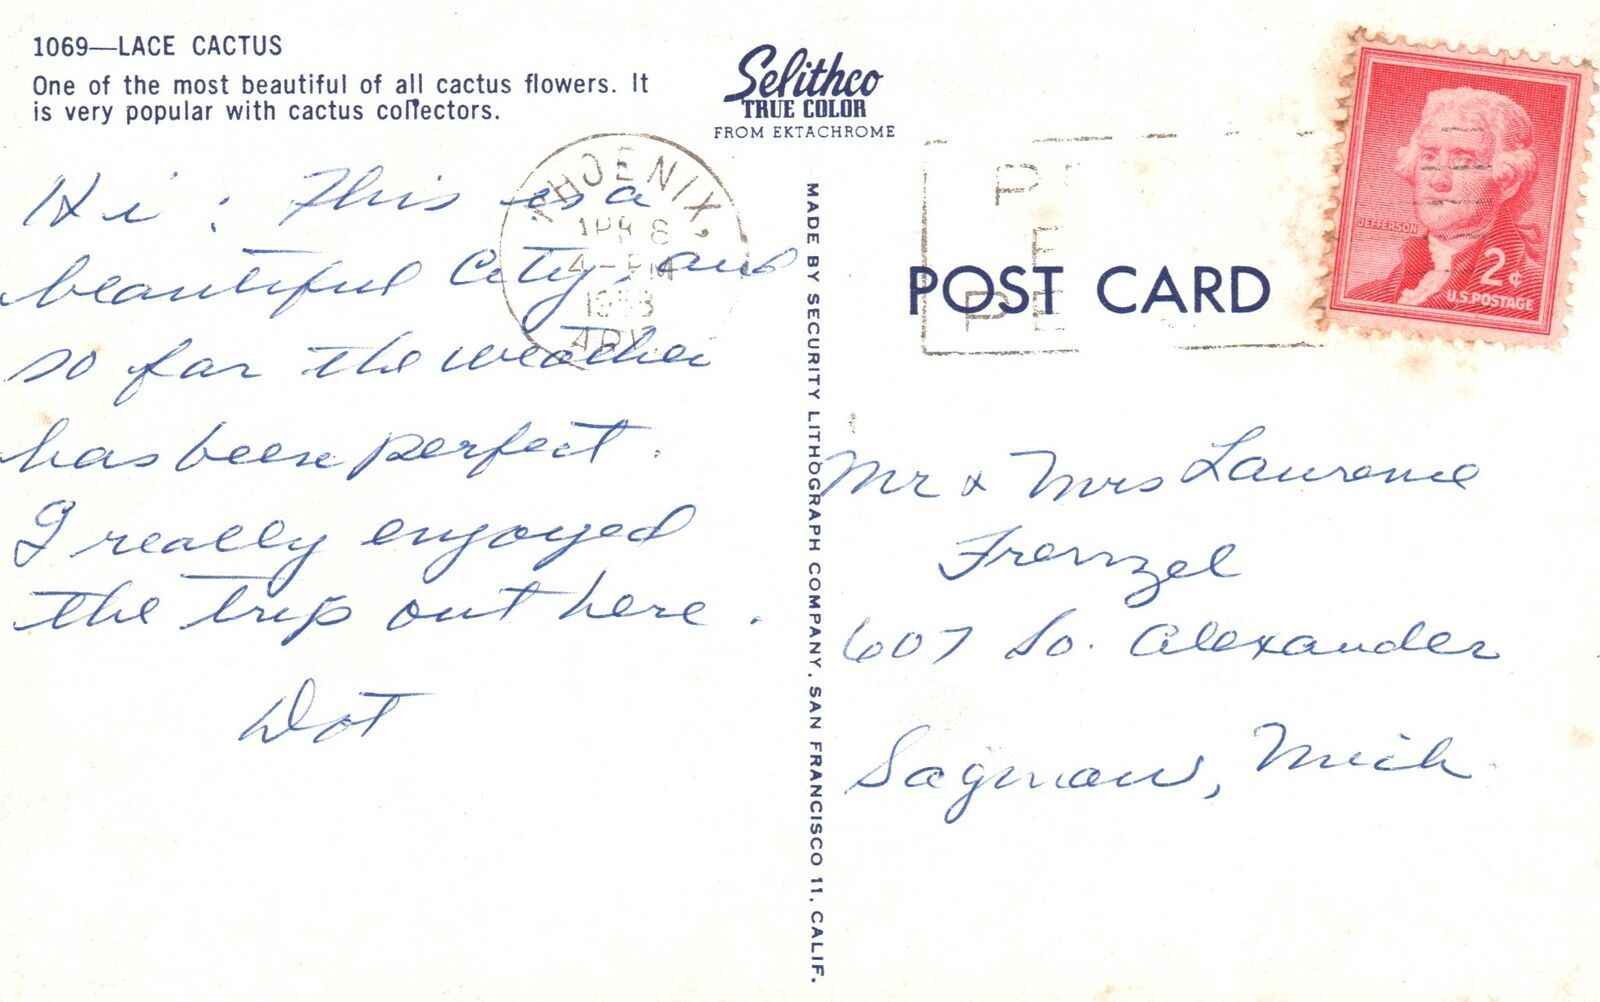 1069—LACE CACTUS
One of the most beautiful of all cactus flowers. It
is very popular with cactus collectors.
Selithco
TRUE COLOR
FROM EKTACHROME
Hi: This is a
beautiful City, and
so far the weather
has been perfect.
I really enjoyed
the trip out here.
Dot
PHOENIX,
APR 8
4-PM
ARIZ
MADE BY SECURITY LITHOGRAPH COMPANY, SAN FRANCISCO 11, CALIF.
POST CARD
JEFFERSON
2¢
U.S. POSTAGE
Mr & Mrs Laurence
Frenzel
607 So. Alexander
Saginaw, Mich.